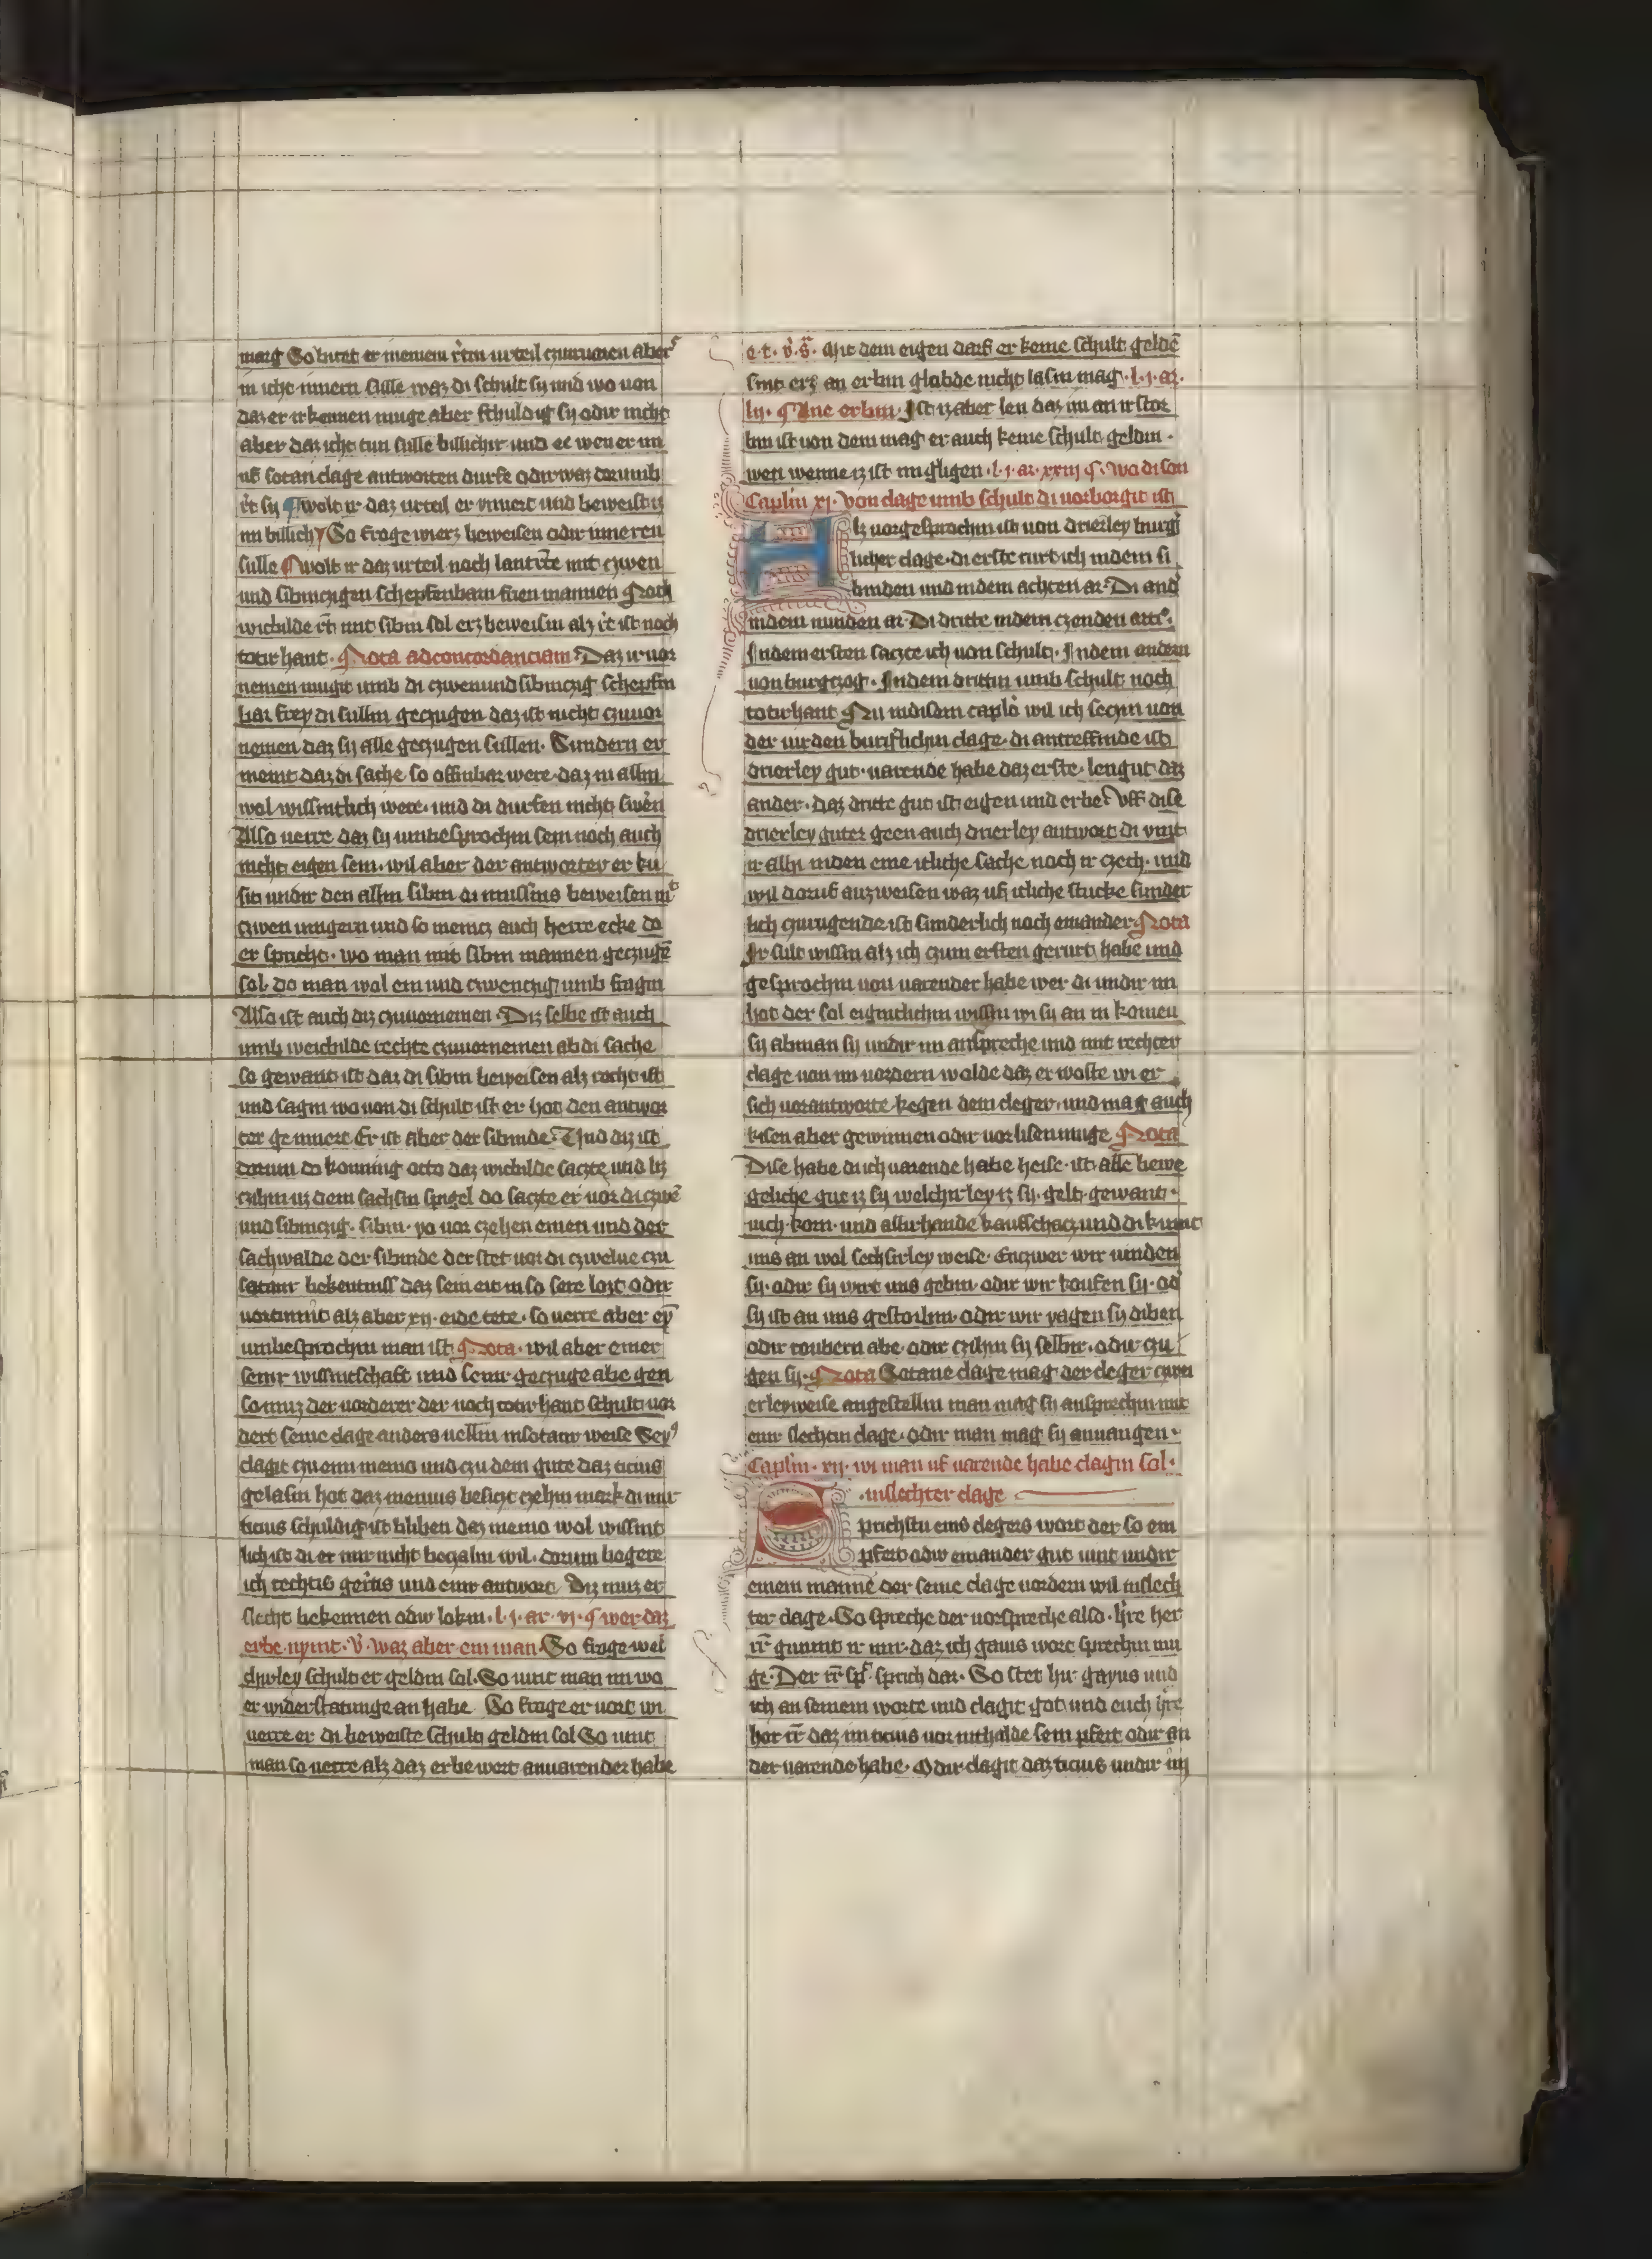 marg So bitet er meinem rtin urteil czuvinden aber
in icht innern sulle waz di schult sy und wo von
daz er irkennen muge aber schuldig sy odir nicht
aber daz icht tun sulle billichir und ee wen er im
uf sotan clage antworten durfe odir waz dorumb
rt sy wolt ir daz urteil er innert und beweistz
im billich So frage wi erz beweisen odir inneren
sulle wolt ir daz urteil noch lantrte mit czwen
und sibinczigen schepfenbarn frien mannen Noch
wicbilde rt mit sibin sol erz beweisin alz rt ist noch
totir hant. Nota ad concordanciam. Daz ir vor
nemen mugit umb di czwen und sibinczig schepfin
bar frey di sullin geczugen daz ist nicht czuvor
nemen daz sy alle geczugen sullen. Sundern er
meint daz di sache so offinbar were daz in allin
wol wissintlich were. und di durfen nicht swern
Also verre daz sy umbesprochin sein noch auch
nicht eigen sein. wil aber der antworter er ku
sit undir den allin sibin di mussins beweisen mit
czwen iungern und so meinz auch herre ecke do
er spricht. wo man mit sibin mannen geczuge
sol. do man wol ein und czwenczig umb fragin
Also ist auch diz czuvornemen. Diz selbe ist auch
umb weichilde rechte czuvornemen ab di sache
so gewant ist daz di sibin beweisen alz recht ist
und sagin wo von di schult ist er hot den antwor
ter geinnert Er ist aber der sibinde. Und diz ist
dorum do konning otto daz wichilde saczte und liz
czihin uz dem sachsin spigel do saczte er vor di czwe
und sibinczig. sibin. yo vor czehen einen und der
sachwalde der sibinde der stet vor di czwelue czu
sotanir bekentniss daz sein eit in so sere lozt odir
vortimit alz aber xij. eide tete. so verre aber ey
umbesprochin man ist Nota. wil aber einer
seinir wissintschaft und seinir geczuge abe gen
so muz der vorderer der noch totir hant schult vor
dert seine clage anders vellin in sotanir weise Sey
clagit czu eim meino und czu dem gute daz ticius
gelasin hot daz menius besiczt czehin mark di mir
ticius schuldig ist bliben daz meino wol wissint
lich ist di er mir nicht beczalin wil. dorum begere
ich rechtis gerits und einir antwort. Diz muz er
slecht bekennen odir lokin. l. j. ar. vi. wer daz
erbe nymt. v. waz aber ein man. So frage wel
chirley schult er geldin sol. So vint man im wo
er widerstatunge an habe. So frage er vort wi
verre er di beweiste schult geldin sol So vint
man so verre alz daz erbe wert an varender habe
e. t. v. s. Mit dem eigen darf er keine schult gelden
sint erz an erbin glabde nicht lasin mag. l. j. ar.
lij. Ane erbin. Ist iz aber len daz im an irstor
bin ist von dem mag er auch keine schult geldin.
wen wenne iz ist im gligen. l. j. ar. xxiij. wo di son
Caplin xj. Von clage umb schult di vorborgit ist
Alz vorgesprochin ist von drierley burg
licher clage. di erste rurt ich in dem si
binden und in dem achten ar. Di and
in dem nunden ar. Di dritte in dem czenden arti.
In dem ersten saczte ich von schult. In dem andern
von burgczog. In dem drittin umb schult noch
totir hant Nu in disem caplo wil ich seczin von
der virden burislichin clage. di antreffinde ist
drierley gut. varende habe daz erste. lengut daz
ander. daz dritte gut ist eigen und erbe. Vff dise
drierley guter geen auch drierley antwort di vint
ir allin in den eine itliche sache noch ir czech. und
wil doruf auzweisen waz uf itliche stucke sunder
lich czutugende ist sunderlich noch einander. Nota
Ir sult wissin alz ich czum ersten gerurt habe und
gesprochin von varender habe wer di undir im
hot der sol eigintlichin wissin wi sy an in komen
sy ab man sy undir im anspreche und mit rechter
clage von im vordern wolde daz er woste wi er
sich vorantworte kegen dem cleger. und mag auch
kisen aber gewinnen odir vorlisen muge Nota
Dise habe di ich varende habe heise. ist alle bewe
geliche gut iz sy welchirley iz sy. gelt. gewant.
vich. korn. und allirhande kaufschacz und di kumt
uns an wol sechsirley weise. Enczwer wir vinden
sy. odir sy wirt uns gebin. odir wir koufen sy. od
sy ist an uns gestorbin. odir wir yagen sy diben
odir roubern abe. odir czihin sy selbir. odir czu
gen sy. Nota Sotane clage mag der cleger czwe
erleyweise angestellin man mag sy ansprechin mit
einir slechtin clage. odir man mag sy anvangen.
Caplin. xij. wi man uf varende habe clagin sol.
in slechter clage
Sprichstu eins clegers wort der so ein
pfert odir einander gut vint undir
einem manne der seine clage vordern wil in slech
ter clage. So spreche der vorspreche also. hre her
rr gunnit ir mir. daz ich gaius wort sprechin mu
ge. Der rr spr. sprich dar. So stet hir gayus und
ich an seinem worte und clagit got und euch hre
her rr daz im ticius vor inthalde sein pfert odir an
der varende habe. Odir clagit daz ticius undir im